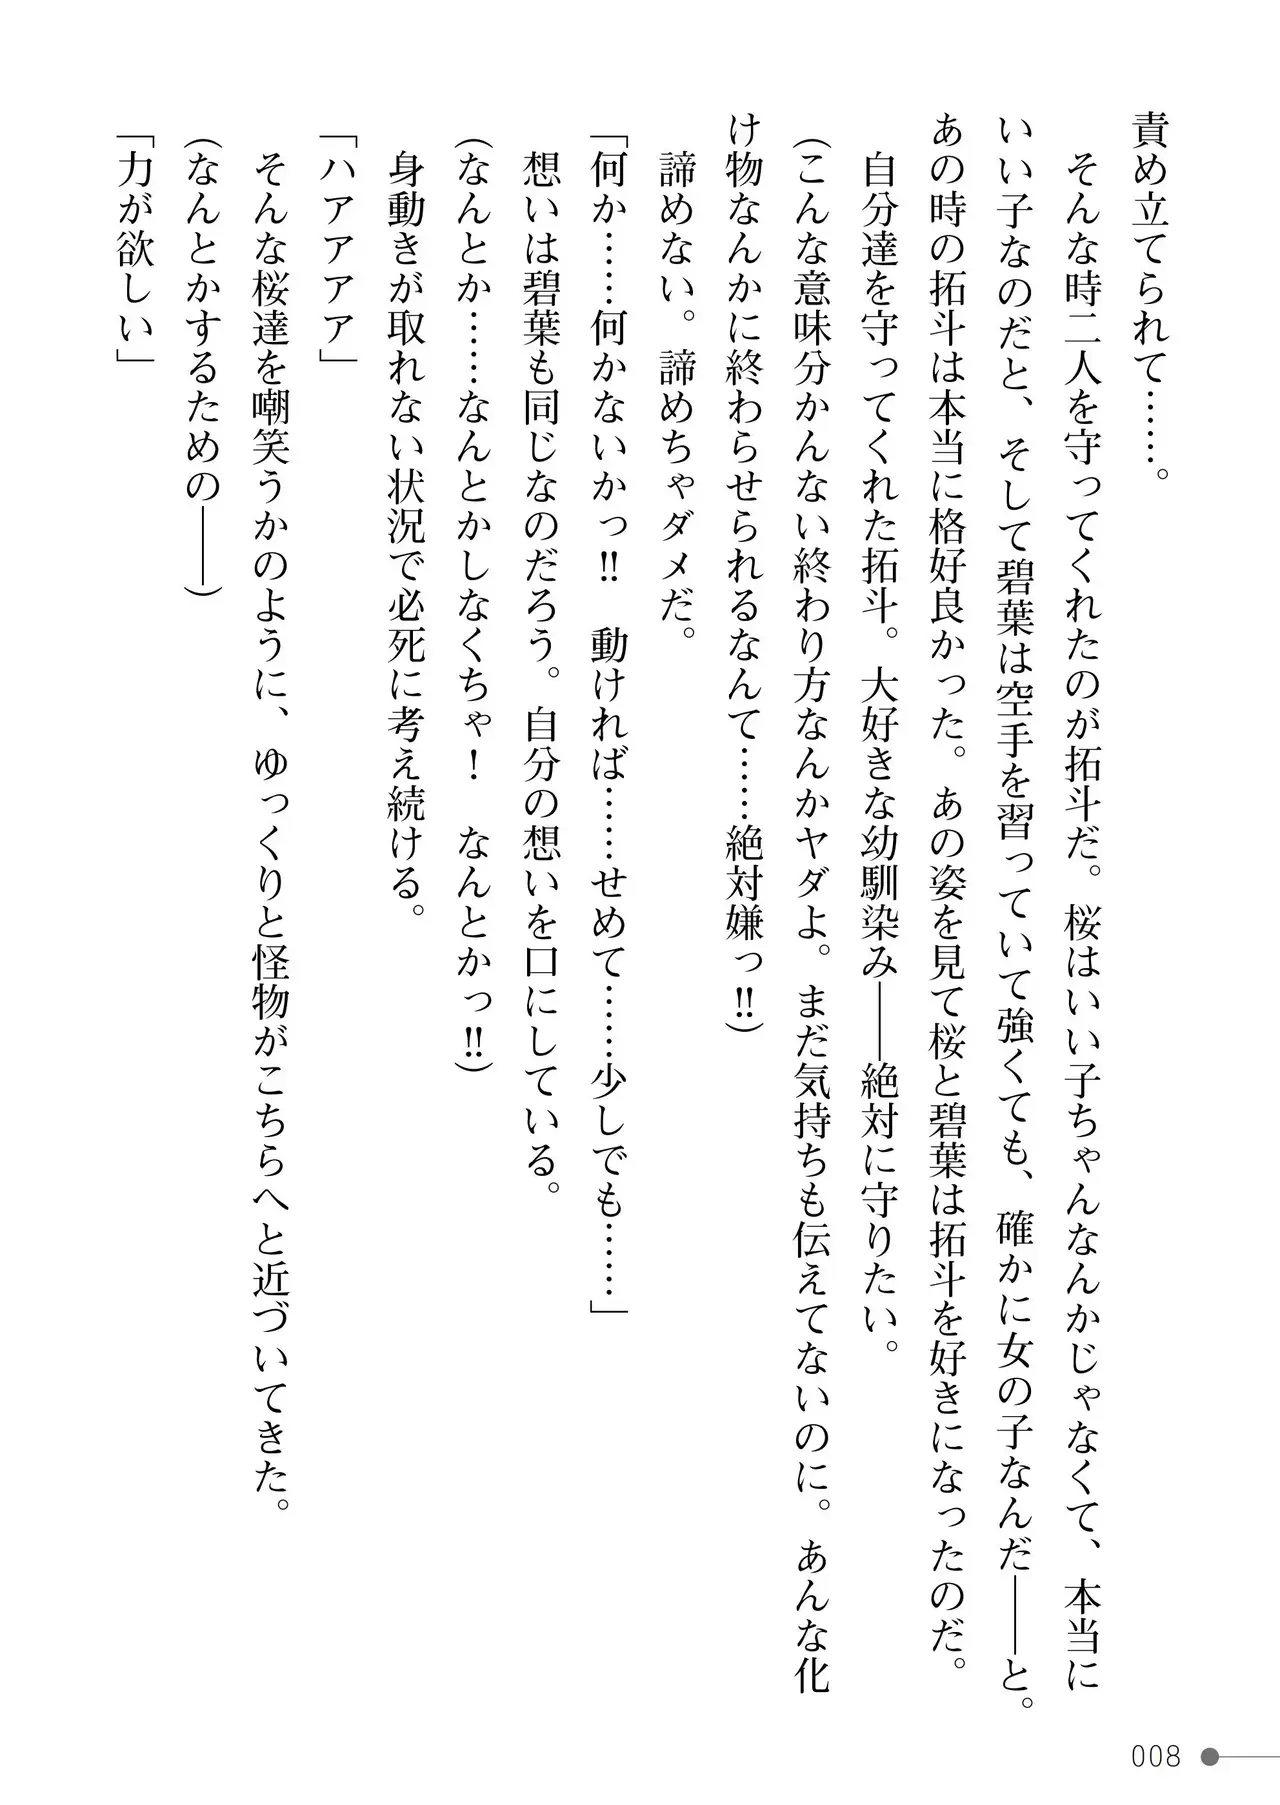 責め立てられて……。
　そんな時二人を守ってくれたのが拓斗だ。桜はいい子ちゃんなんかじゃなくて、本当に
いい子なのだと、そして碧葉は空手を習っていて強くても、確かに女の子なんだ――と。
あの時の拓斗は本当に格好良かった。あの姿を見て桜と碧葉は拓斗を好きになったのだ。
　自分達を守ってくれた拓斗。大好きな幼馴染み――絶対に守りたい。
（こんな意味分かんない終わり方なんかヤダよ。まだ気持ちも伝えてないのに。あんな化
け物なんかに終わらせられるなんて……絶対嫌っ‼）
　諦めない。諦めちゃダメだ。
「何か……何かないかっ‼　動ければ……せめて……少しでも……」
　想いは碧葉も同じなのだろう。自分の想いを口にしている。
（なんとか……なんとかしなくちゃ！　なんとかっ‼）
　身動きが取れない状況で必死に考え続ける。
「ハアアアア」
　そんな桜達を嘲笑うかのように、ゆっくりと怪物がこちらへと近づいてきた。
（なんとかするための――）
「力が欲しい」
008